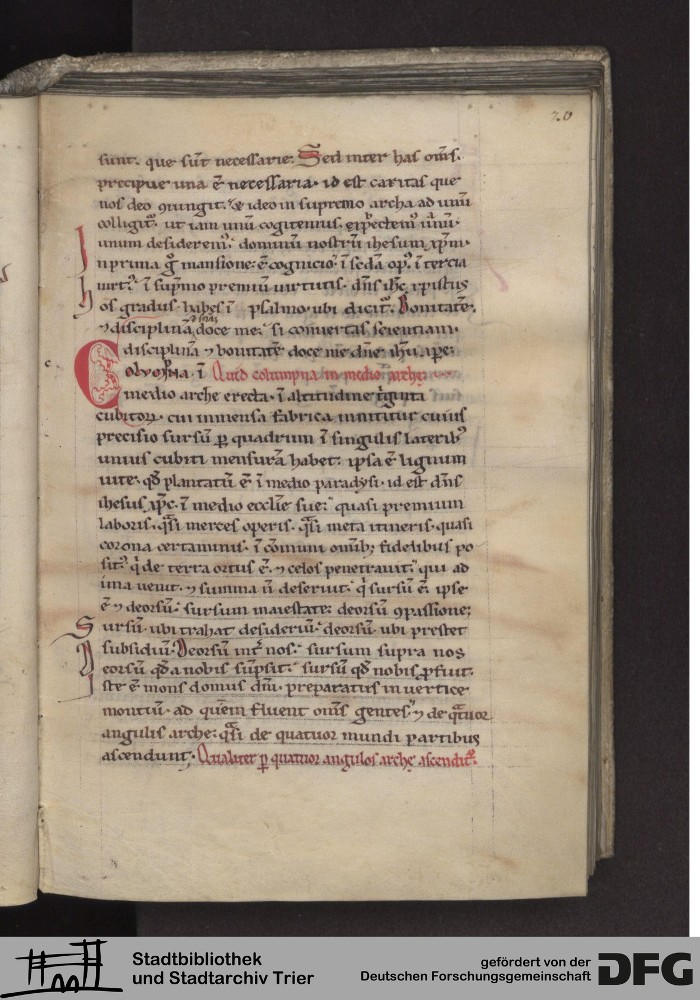 20
sunt. que sūt necessarie. Sed inter has om̄s.
precipue una ē necessaria. id est caritas que
nos deo ꝯiungit. & ideo in supremo archa ad unū
colligit᷑. ut iam unū cogitemus. exp̄ectem᷒ unū.
unum desiderem᷒. dominū nostrū ihesum xp̄m.
In prima gͦ mansione. ē cognicio. ī sc̄da op᷒. ī tercia
uirt᷒. ī sup̄mo premiū uirtutis. dn̄s ihc̄ xpistus
hos gradus habes ī psalmo. ubi dicit᷑. Bonitatē.
⁊ disciplinā doce me. si conuertas scientiam.
disciplinā ⁊ bonitatē doce me dn̄e ihū xp̄e.
Colūpna. ī Quid columpna in medio arche.
medio arche erecta. ī altitudine triginta
cubitoꝝ. cui inmensa fabrica innititur cuius
precisio sursū ꝑ quadrum ī singulis laterib᷒
unius cubiti mensurā habet. ipsa ē lignum
uite. qd̄ plantatū ē ī medio paradysi. id est dn̄s
ihesus xp̄c. ī medio eccl̄ie sue. quasi premium
laboris. qͣsi merces operis. qͣsi meta itineris. quasi
corona certaminis. ī cōmuni omīb; fidelibus po
sit᷒. qͥ de terra ortus ē. ⁊ celos penetrauit. qui ad
ima uenit. ⁊ summa ñ deseruit. qͥ sursū ē. ipse
ē ⁊ deorsū. sursum maiestate. deorsū ꝯpassione;
Sursū. ubi trahat desideriū. deorsū. ubi prestet
subsidiū. Deorsū int᷑ nos. sursum supra nos
Deorsū qd̄ a nobis sūpsit. sursū qd̄ nobis ꝓfuit.
Iste ē mons domus dn̄i. preparatus in uertice
montiū. ad quem fluent om̄s gentes. ⁊ de qͣtuor
angulis arche. qͣsi de quatuor mundi partibus
ascendunt. Qualiter ꝑ quatuor angulos arche ascendit᷑.
Stadtbibliothek
und Stadtarchiv Trier
gefördert von der
Deutschen Forschungsgemeinschaft
DFG